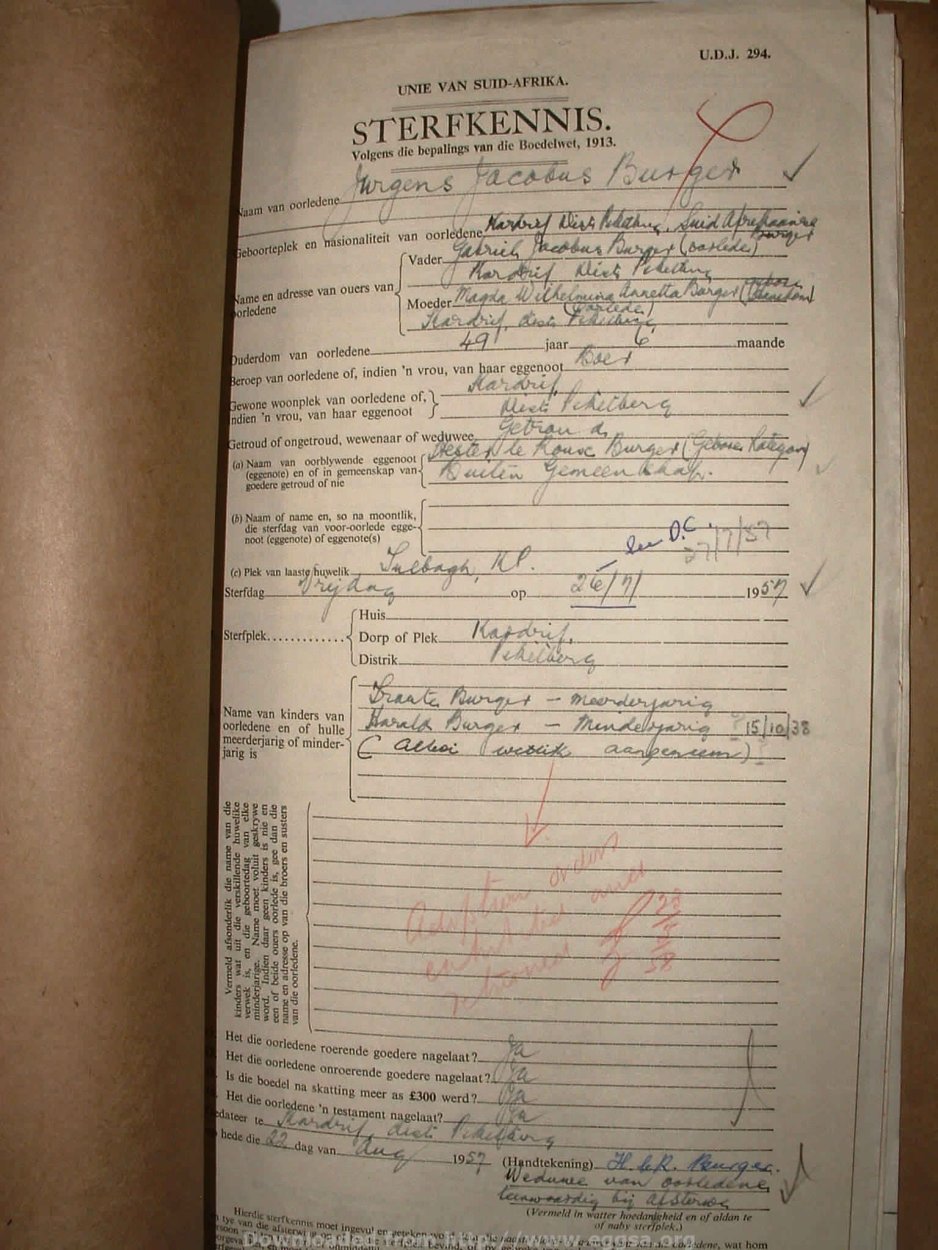 U.D.J. 294.
UNIE VAN SUID-AFRIKA.
STERFKENNIS.
Volgens die bepalings van die Boedelwet, 1913.
Naam van oorledene Jurgens Jacobus Burger
Geboorteplek en nasionaliteit van oorledene Kardrif Dist. Piketberg, Suid Afrikaanse Burger
Name en adresse van ouers van oorledene
Vader Gabriel Jacobus Burger (oorlede)
Kardrif Dist. Piketberg
Moeder Magda Wilhelmina Annetta Burger (gebore
(oorlede)
Kardrif, dist. Piketberg
Ouderdom van oorledene 49 jaar 6 maande
Beroep van oorledene of, indien 'n vrou, van haar eggenoot Boer
Gewone woonplek van oorledene of, indien 'n vrou, van haar eggenoot Kardrif
Dist. Piketberg
Getroud of ongetroud, wewenaar of weduwee Getroud
(a) Naam van oorblywende eggenoot (eggenote) en of in gemeenskap van goedere getroud of nie Hester le Roux Burger (Gebore
Buiten Gemeenskap.
(b) Naam of name en, so na moontlik, die sterfdag van voor-oorlede eggenoot (eggenote) of eggenote(s)
See D.C. 27/7/57
(c) Plek van laaste huwelik Tulbagh, K.P.
Sterfdag Vrijdag op 26/7/ 1957
Sterfplek
Huis
Dorp of Plek Kardrif.
Distrik Piketberg
Name van kinders van oorledene en of hulle meerderjarig of minderjarig is
Burger – meerderjarig
Harald Burger – Minderjarig 15/10/38
(Albei wetlik aangeneem)
Vermeld afsonderlik die name van die kinders wat uit die verskillende huwelike verwek is, en die geboortedag van elke minderjarige. Name moet voluit geskrywe word. Indien daar geen kinders is nie en een of beide ouers oorlede is, gee dan die name en adresse op van die broers en susters van die oorledene.
Adoption orders
and
returned
Het die oorledene roerende goedere nagelaat? Ja
Het die oorledene onroerende goedere nagelaat? Ja
Is die boedel na skatting meer as £300 werd? Ja
Het die oorledene 'n testament nagelaat? Ja
edateer te Kardrif, dist. Piketberg
hede die 22 dag van Aug 1957
(Handtekening) H. le R. Burger.
Weduwee van oorledene
teenwoordig bij afsterwe
(Vermeld in watter hoedanigheid en of aldan te of naby sterfplek.)
Hierdie sterfkennis moet ingevul en geteken wo
Downloaded from http://www.eggsa.org